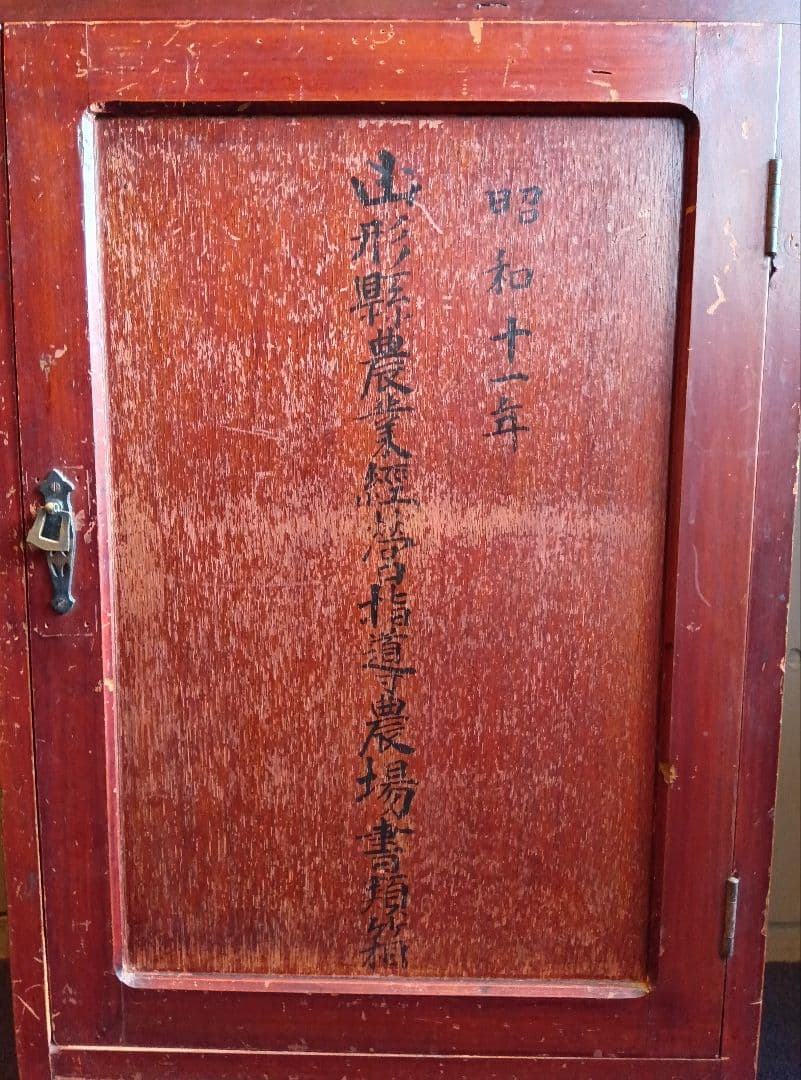 昭和十一年
山形縣農業經營指導農場書類箱